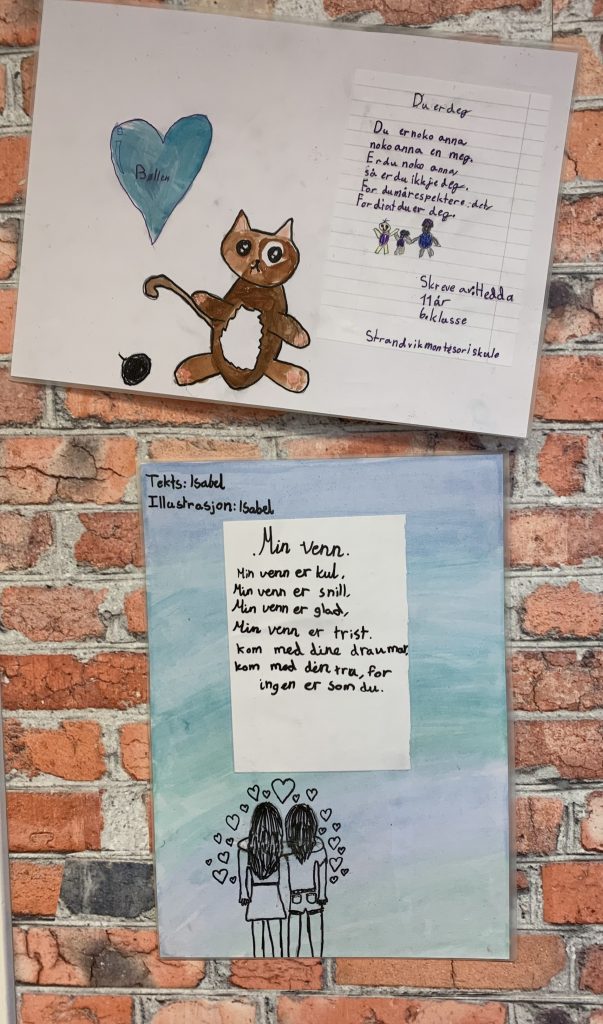 Bollen
Du er deg
Du er noko anna
noko anna en meg.
Er du noko anna
så er du ikkje deg.
For du må respektere det
Fordi at du er deg.
Skreve av: Hedda
11 år
6. klasse
Strandvik montesori skule
Tekts: Isabel
Illustrasjon: Isabel
Min venn.
Min venn er kul,
Min venn er snill,
Min venn er glad,
Min venn er trist.
kom med dine draumar,
kom med den tru, for
ingen er som du.